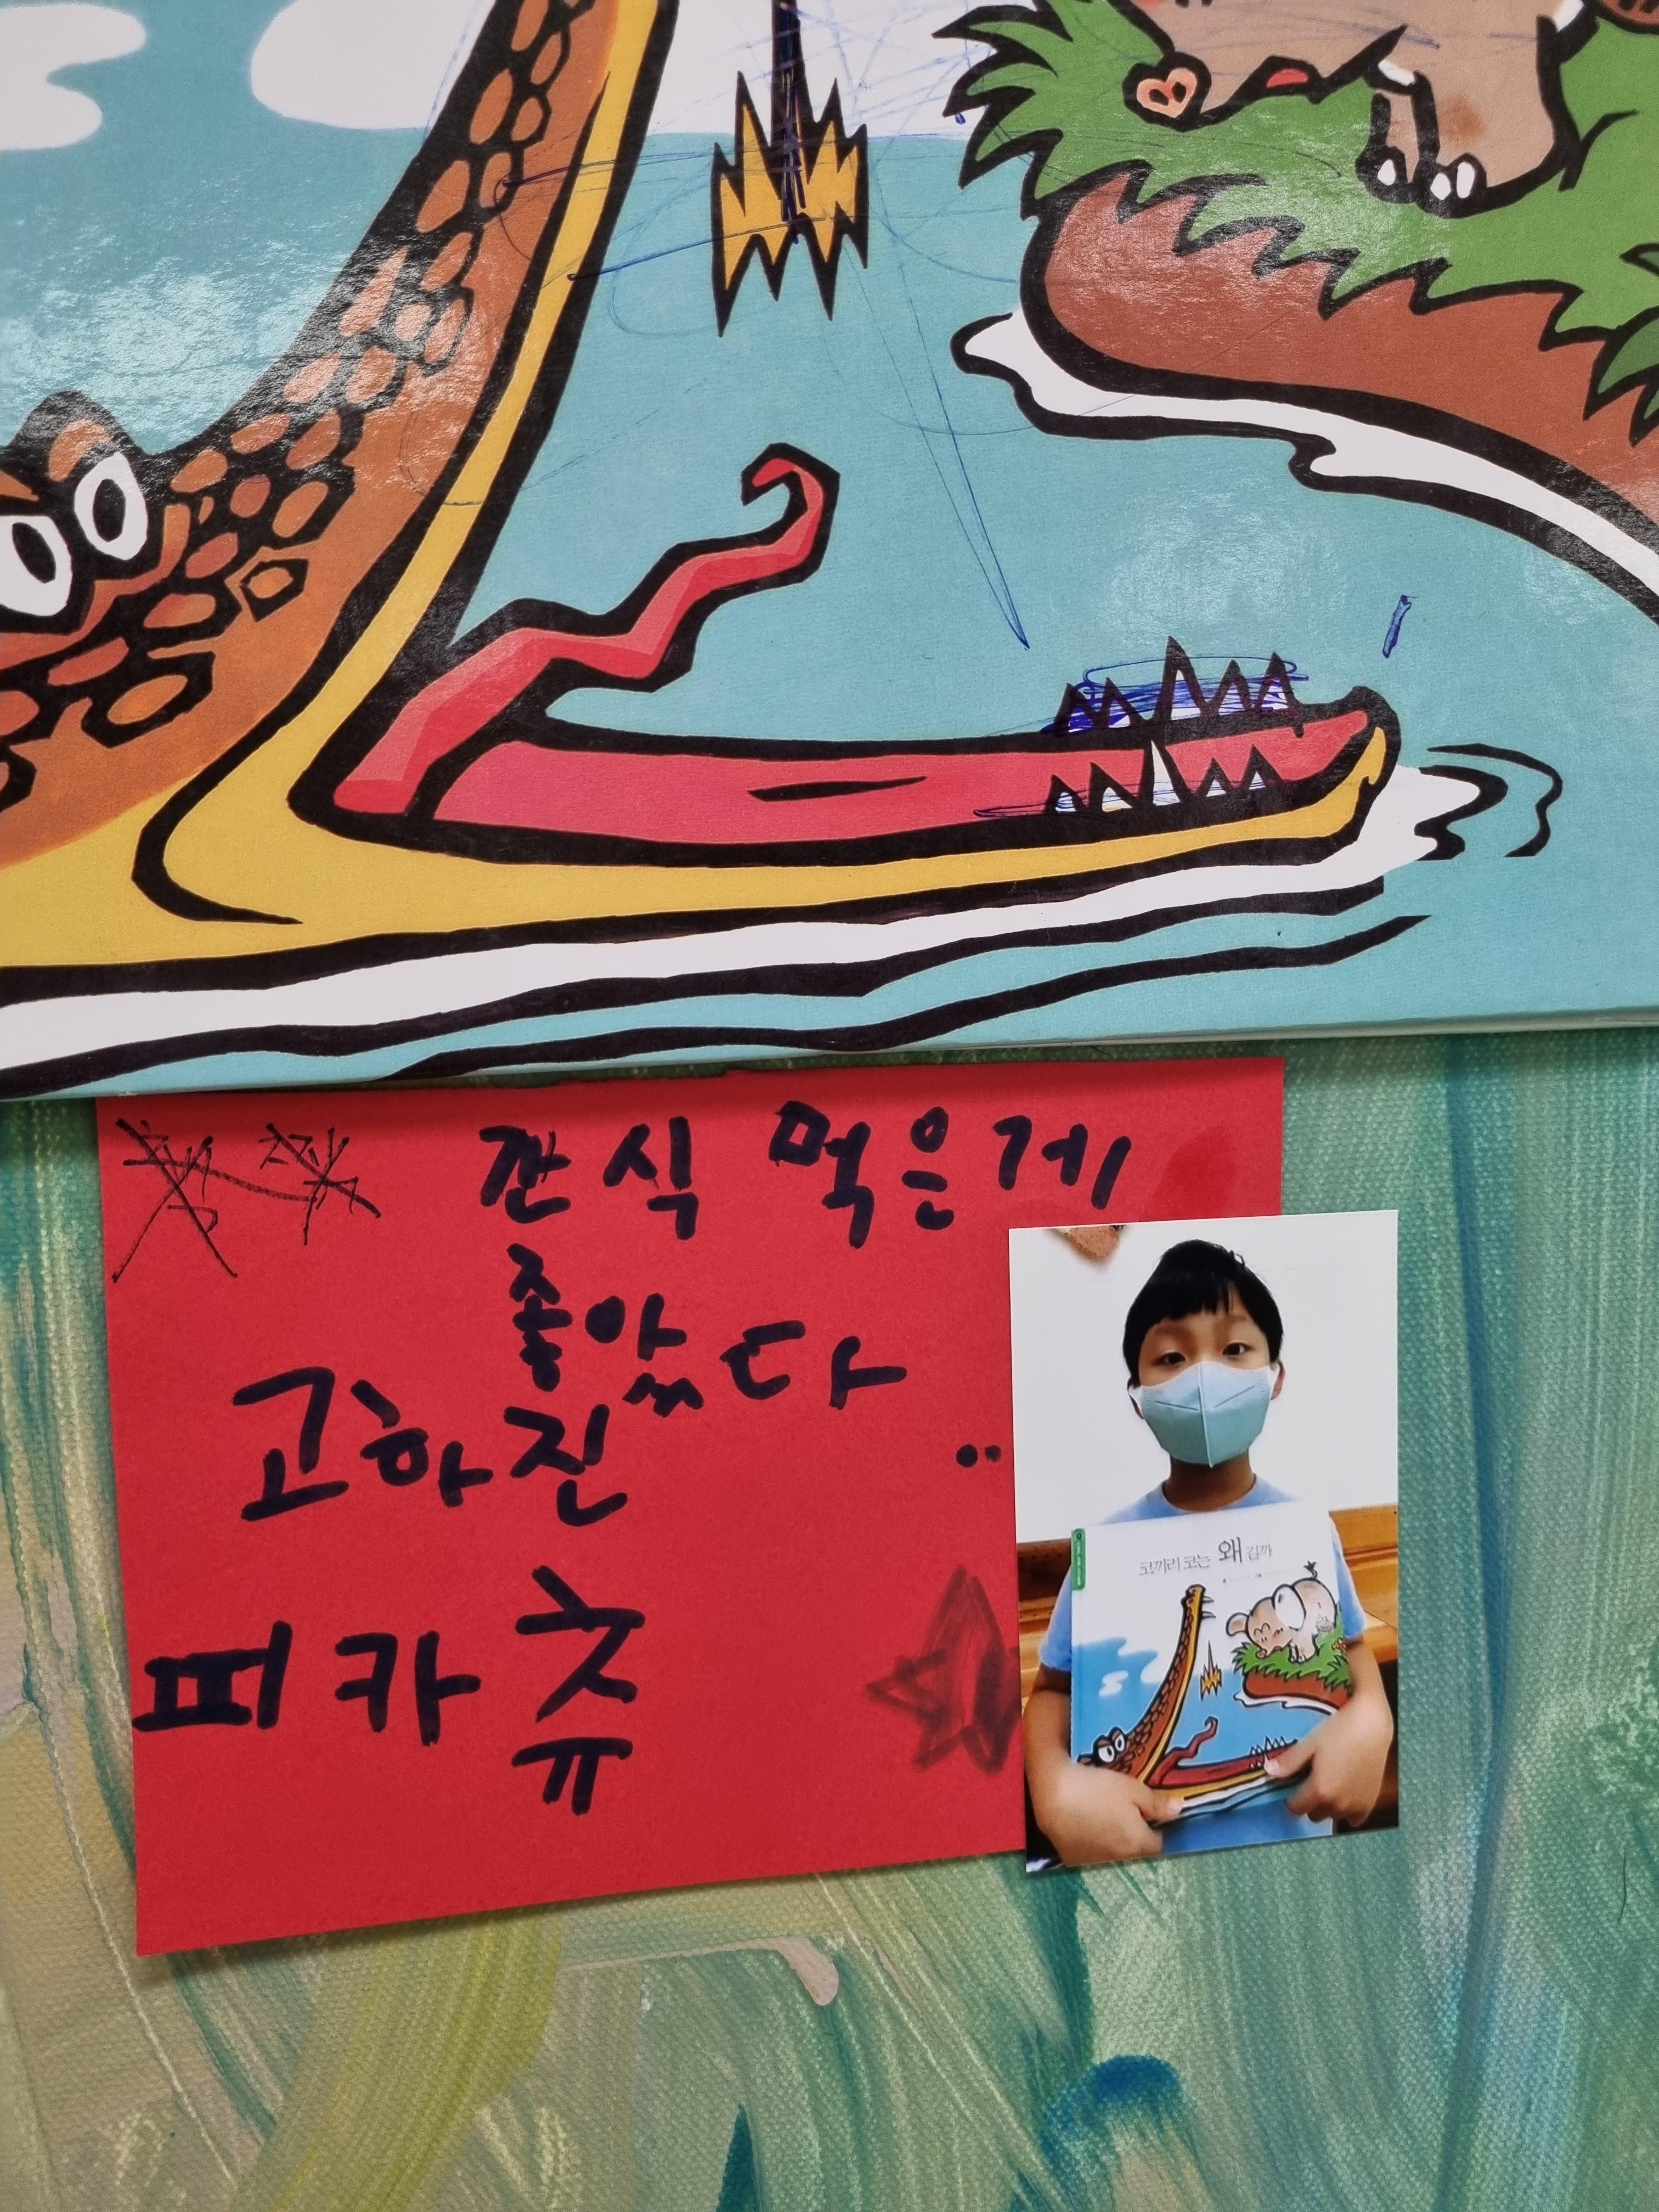 간식 먹은게
좋았다
고하진
피카츄
코끼리 코는 왜 길까